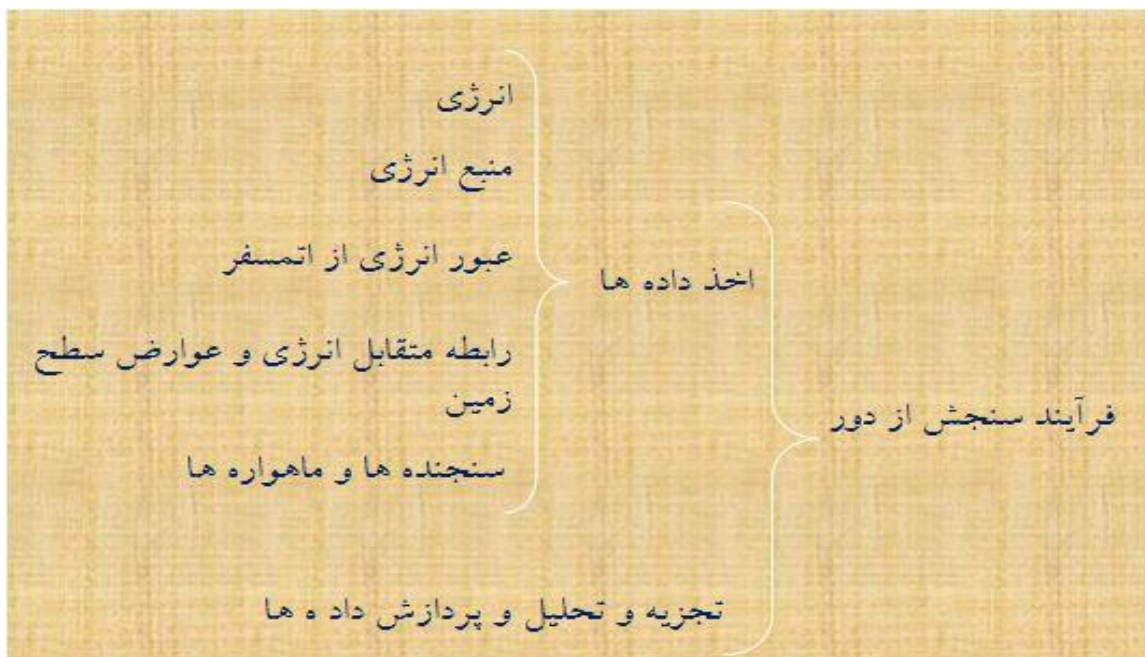 فرآیند سنجش از دور
اخذ داده ها
انرژی
منبع انرژی
عبور انرژی از اتمسفر
رابطه متقابل انرژی و عوارض سطح
زمین
سنجنده ها و ماهواره ها
تجزیه و تحلیل و پردازش داد ه ها